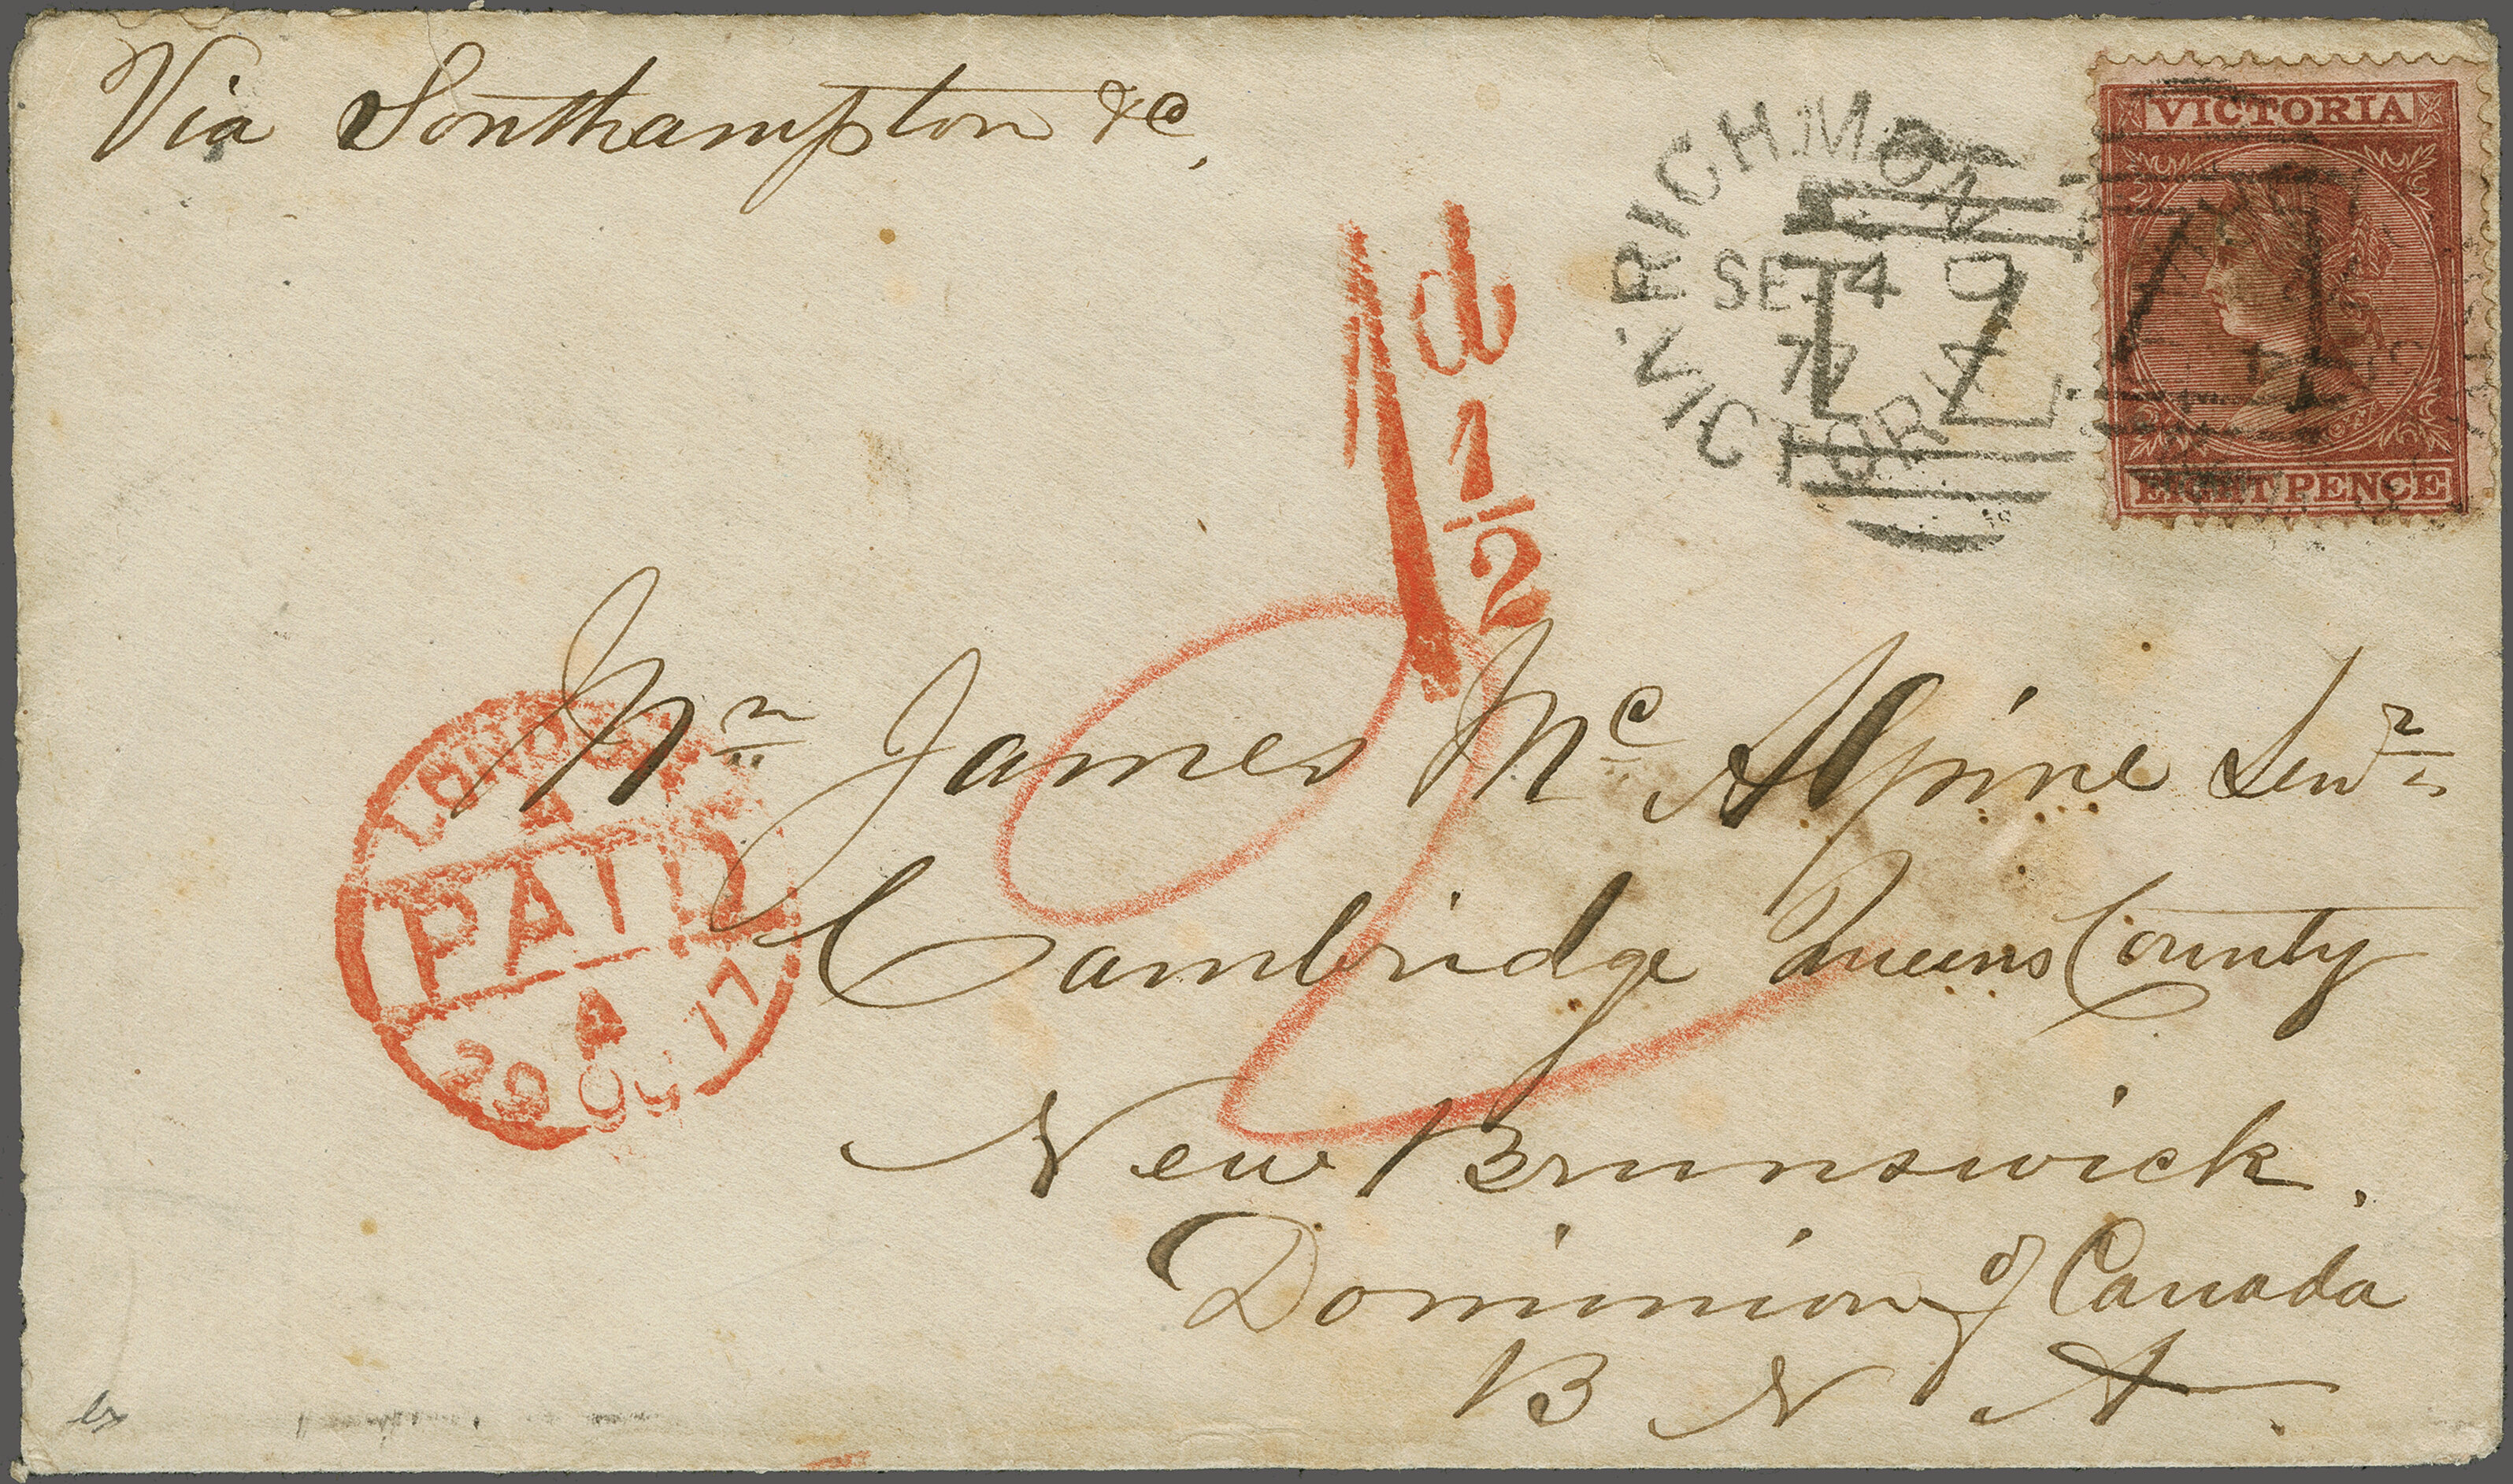 Via Southampton &c,
VICTORIA
EIGHT PENCE
RICHMOND VICTORIA
SE 14
77
17
1d 1/2
Mr James McAlpine Senr
Cambridge Queens County
New Brunswick.
Dominion of Canada
B N A.
LONDON
A
PAID
A
29 OC 77